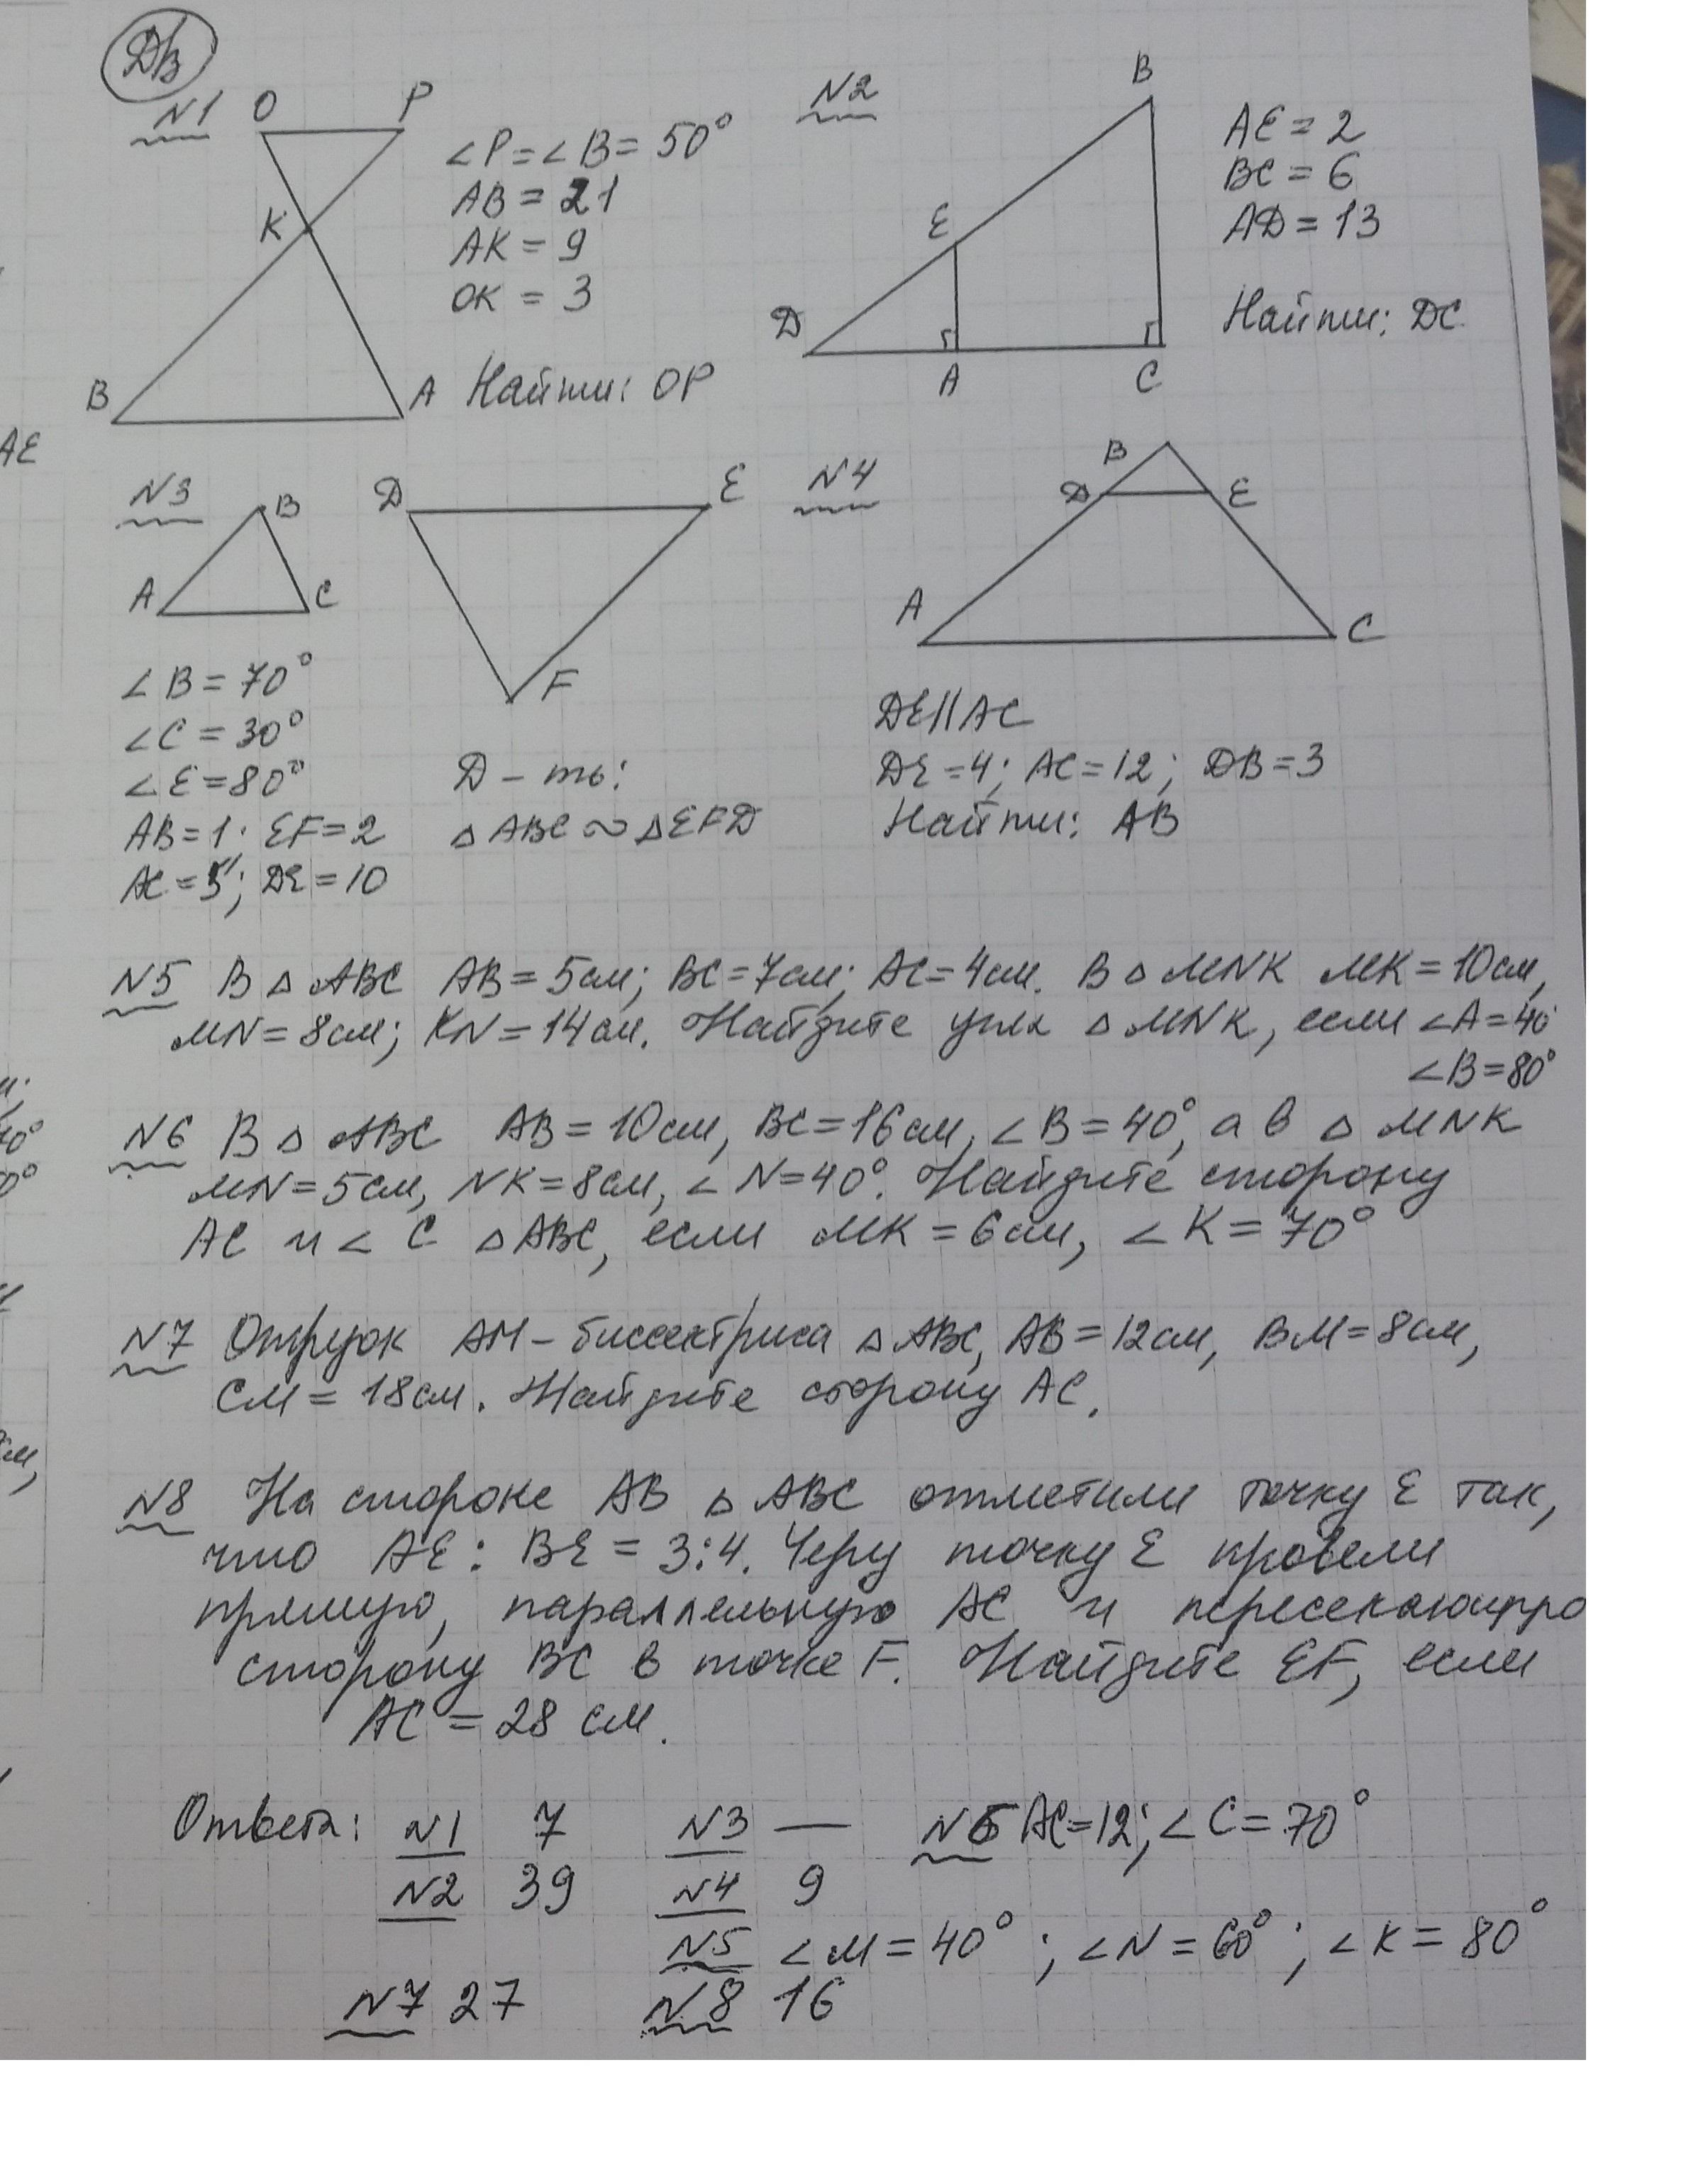 ДЗ
N1
O
P
K
B
A
∠P=∠B=50°
AB=21
AK=9
OK=3
Найти: OP
N2
B
E
D
A
C
AE=2
BC=6
AD=13
Найти: DC
AE
N3
B
A
C
D
E
F
∠B=70°
∠C=30°
∠E=80°
AB=1; EF=2
AC=5; DE=10
Д-ть:
△ABC∾△EFD
N4
B
D
E
A
C
DE||AC
DE=4; AC=12; DB=3
Найти: AB
N5 В △ ABC AB=5см; BC=7см; AC=4см. В △ MNK MK=10см,
MN=8см; KN=14см. Найдите углы △ MNK, если ∠A=40°
∠B=80°
N6 В △ ABC AB=10см, BC=16см, ∠B=40°, а в △ MNK
MN=5см, NK=8см, ∠N=40°. Найдите сторону
AC и ∠C △ABC, если MK=6см, ∠K=70°
N7 Отрезок AM-биссектриса △ABC, AB=12см, BM=8см,
CM=18см. Найдите сторону AC.
N8 На стороне AB △ ABC отметили точку E так,
что AE:BE=3:4. Через точку E провели
прямую, параллельную AC и пересекающую
сторону BC в точке F. Найдите EF, если
AC=28 см.
Ответы: N1 7 N3 — N6 AC=12; ∠C=70°
N2 39 N4 9
N5 ∠M=40°; ∠N=60°; ∠K=80°
N7 27 N8 16